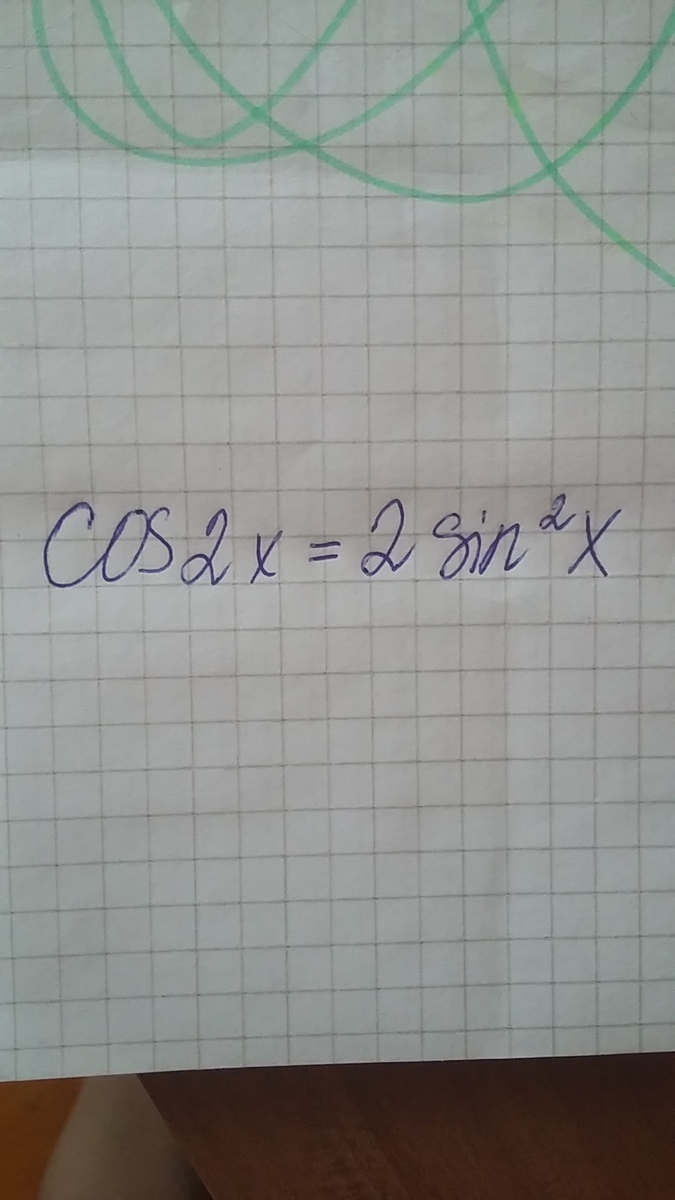 cos2x = 2 sin²x